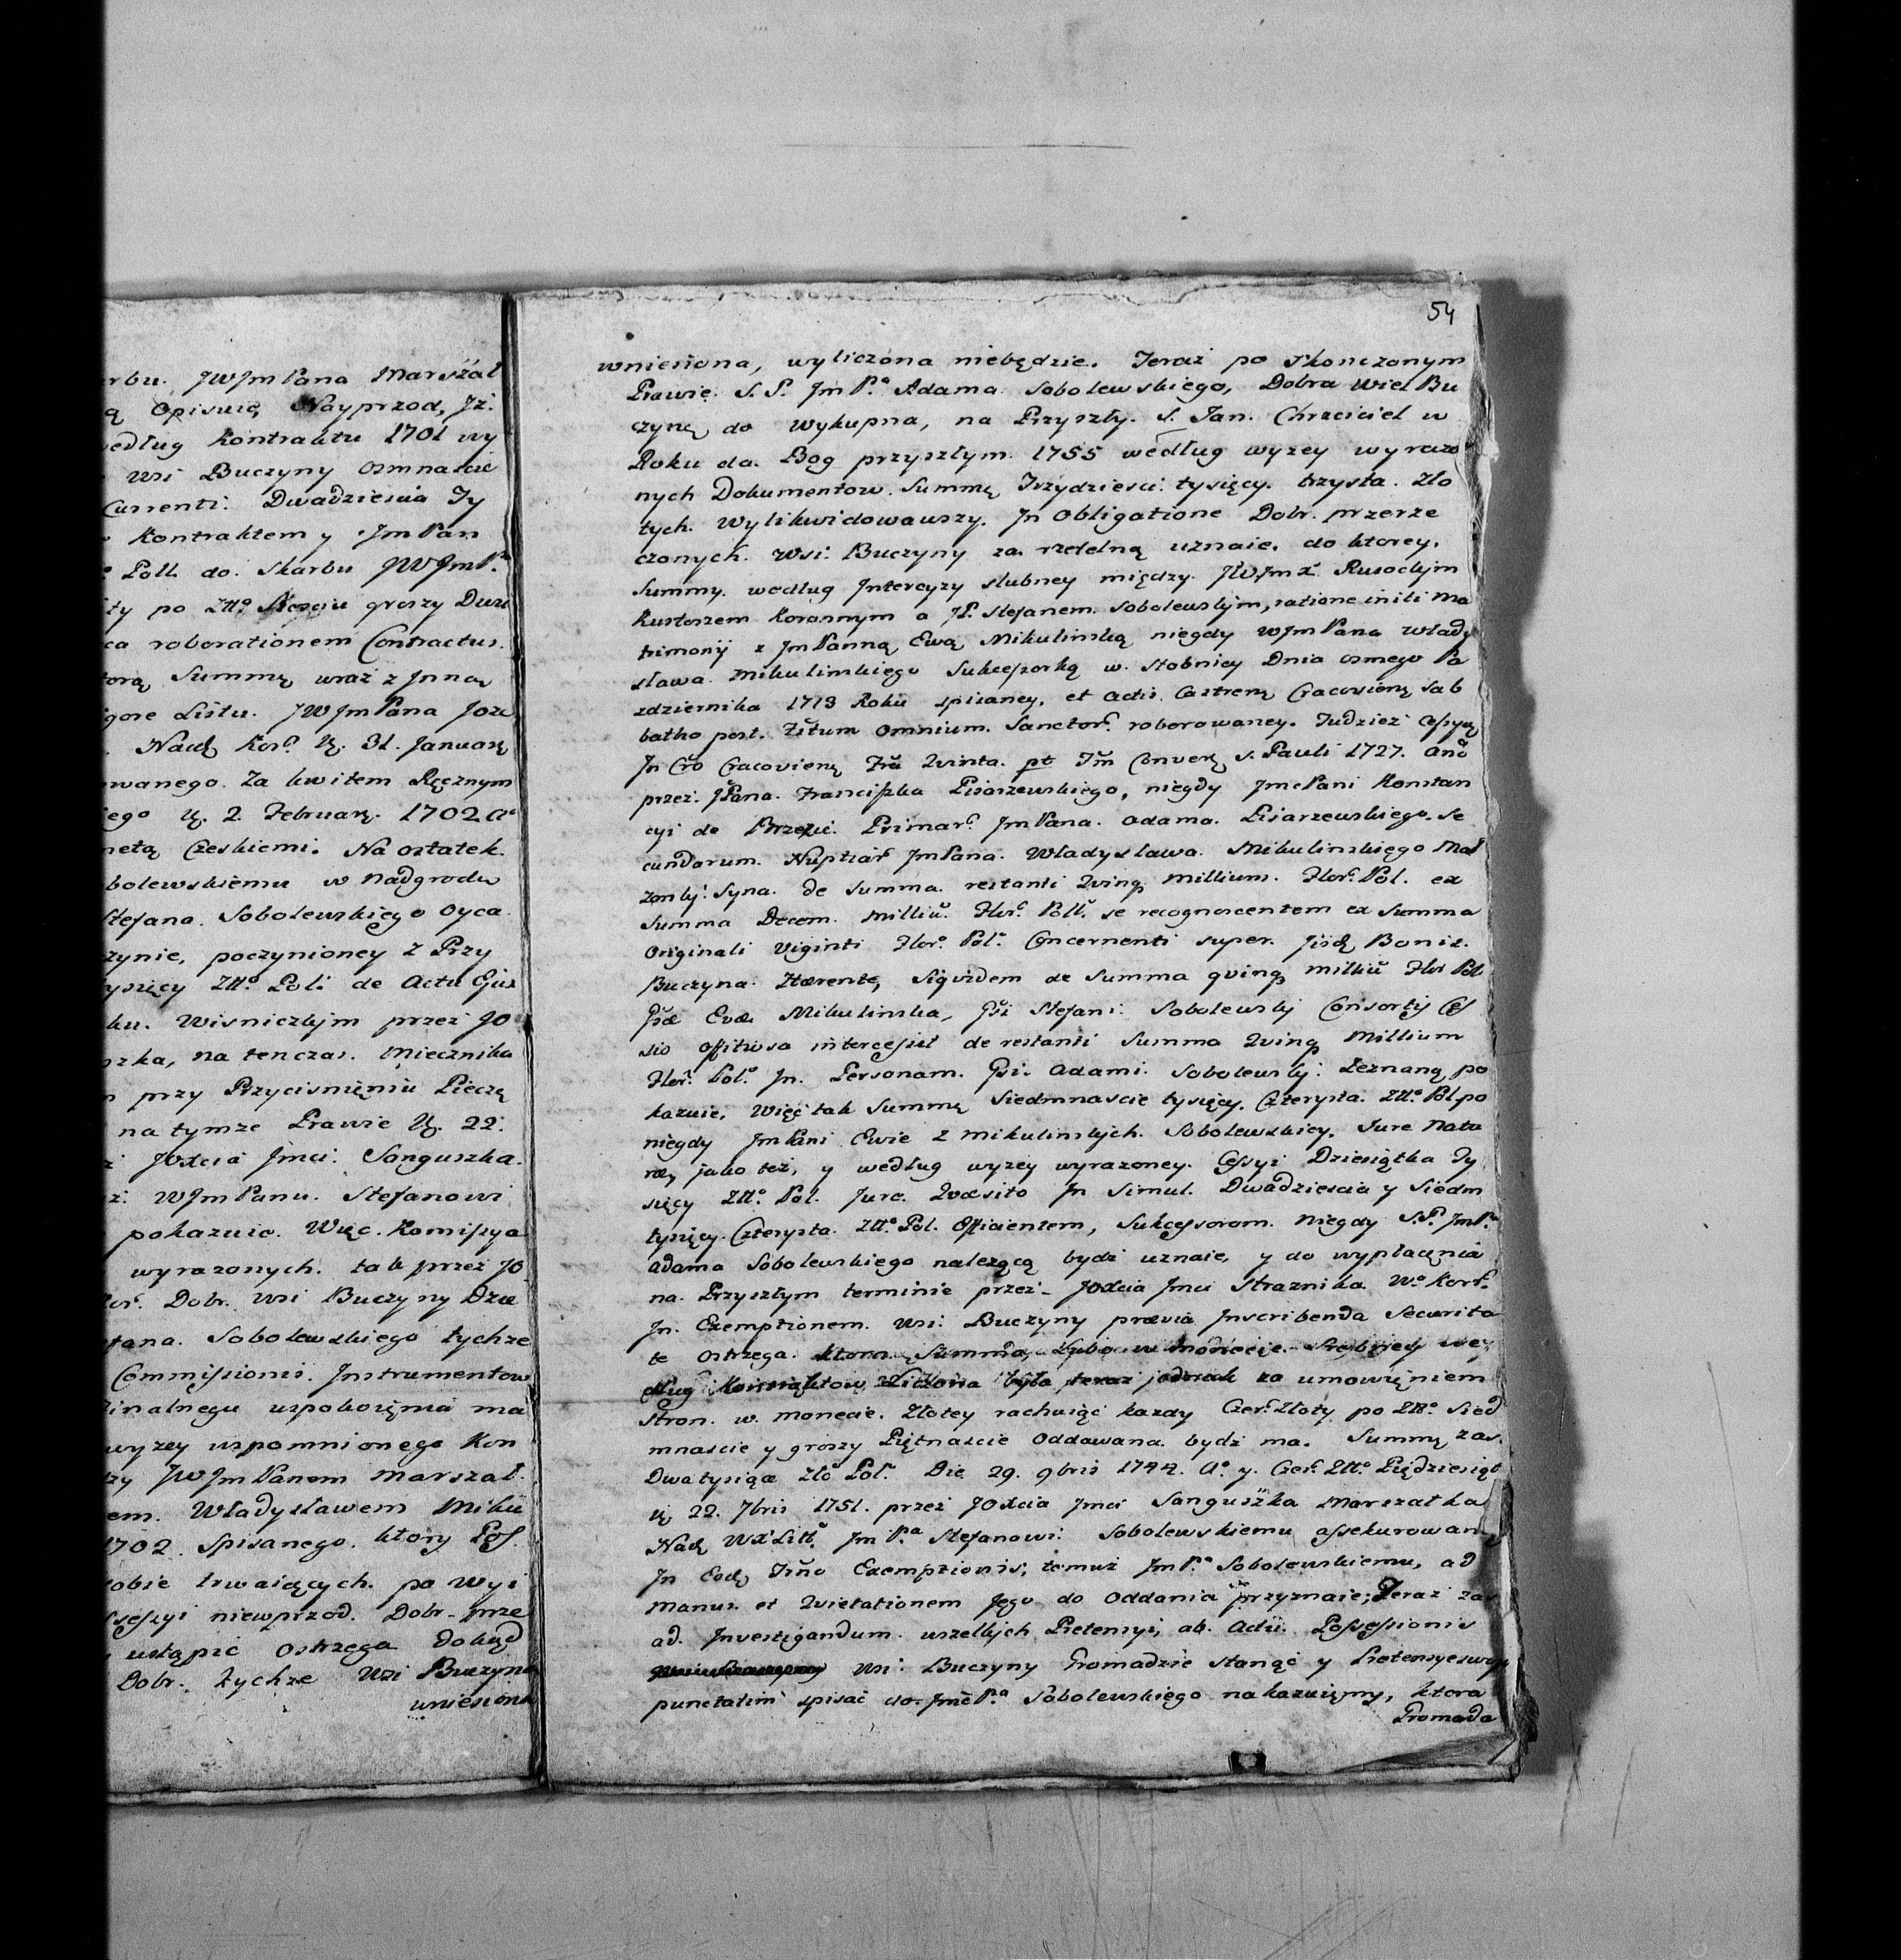 rbu. JWJmPana Marszał
ą Opisuią Nayprzod, Jż.
według Kontraktu 1701 wy
wsi Buczyny osmnascie
Currenti: Dwadziescia Ty
Kontraktem y JmPan
Poll. do. Skarbu JWJmP.ª
ty po Złł.º groszy Dwu
ca roborationem Contractus.
torą Summę wraz z Jnną
igore Listu. JWJmPana Joze
Nadl Kor. 31. January
owanego. Za kwitem Ręcznym
iego 2. February. 1702 Aº
netą Czeskiemi. Na ostatek.
bolewskiemu w Nadgrodę
Stefana. Sobolewskiego Oyca.
zynie, poczynioney z Przy
ysięcy Złł.º Pol: de Actu Ejus
ku. Wisniczkjm przez JO
szka, na tenczas. Miecznika
n przy Przycisnięniu Pieczę
na tymze Prawie 22.
JOxcia Jmci. Sanguszka.
z. WJmPanu. Stefanowi
pokazuie. Więc. Komissya
wyrazonych. tak przez JO
Dobr. wsi Buczyny Dzie
tana. Sobolewskiego tychze
Commissionis. Jnstrumentow
inalnego uspokoięnia ma
wyzey wspomnionego Kon
zy JWJmPanem Marszał.
em. Władysławem Miku
1702. Spisanego. ktory
obie trwaiących. po wyi
ssessyi niewprzod. Dobr. prze
ustąpic ostrzega Dokąd
Dobr. tychze Wsi Buczyna
wniesiona
54
wniesiona, wyliczona niebędzie. Teraz po skonczonym
Prawie. S. P. JmP.ª Adama Sobolewskiego, Dobra Wies Bu
czynę do wykupna, na Przyszły. S. Jan. Chrzciciel w
Roku da. Bog przyszłym. 1755 według wyzey wyrazo
nych Dokumentow. Summę Trzydziesci. tysięcy. trzysta. Zło
tych. Wylikwidowawszy. Jn Obligatione Dobr. przerze
czonych. Wsi. Buczyny za. rzetelną uznaie. do ktorey.
Summy. według Jntercyzy slubney między. JWJmX Rusockjm
Kustoszem Koronnym a JP. Stefanem. Sobolewskjm, ratione initi Ma
trimonij z JmPanną Ewą Mikulinską niegdy WJmPana Włady
sława. Mikulinskiego Sukcessorką w. Stobnicy Dnia osmego Pa
zdziernika 1713 Roku spisaney, et Actis. Castren. Cracovien. Sab
batho post. Festum Omnium. Sanctor. roborowaney. Tudzież Cessyę
Jn Cro Cracovien. Fria Qvinta. pt Fm Convers. S. Pauli 1727. Ano
przez. JPana. Franciszka Pisarzewskiego, niegdy JmcPani Konstan
cyi de Brzezic. Primar. JmPana. Adama. Pisarzewskiego. Se
cundarum. Nuptiar JmPana. Władysława. Mikulinskiego Mał
zonkj. Syna. de Summa. restanti Qvinq. Millium. Flor. Pol. ex
Summa Decem. Milliu. Flor. Poll. se recognoscentem ex Summa
Originali Viginti Flor. Pol. Concernenti super. Jisd. Bonis.
Buczyna. Hærente, Siqvidem de Summa qvinq. milliu Flor Pol.
Gsæ Evæ Mikulinska, Gsi Stefani. Sobolewskj Consortis Ces
sio Officiosa intercessit de restanti Summa Qvinq. Millium
Flor. Pol. Jn. Personam. Gsi. Adami. Sobolewskj. Zeznaną po
kazuie. Więc tak Summę Siedmnascie tysięcy. Czterysta. Złł.º Pol po
niegdy JmPani Ewie z Mikulinskjch. Sobolewskiey. Jure Natu
ra, jako też, y według wyzey wyrazoney. Cessyi Dziesiątka Ty
sięcy Złł.º Pol. Jure. Qvæsito Jn Simul. Dwadziescia y Siedm
tysięcy. Czterysta. Złł.º Pol. Officientem, Sukcessorom. Niegdy S.P. JmP.ª
Adama Sobolewskiego nalezącą bydź uznaie, y do wypłacęnia
na. Przyszłym terminie przez JOxcia Jmci Straznika W.º Korr.
Jn. Exemptionem. wsi. Buczyny prævia Jnscribenda Securita
te Ostrzega. ktora Summa, Lubo w Monecie. Srebrney we
dług Kontraktow Liczona była teraz jednak za umowięniem
Stron. w. Monecie. Złotey rachuiąc kazdy Czer. Złoty po Złł.º Sied
mnascie y groszy Piętnascie Oddawana. bydź ma. Summę zas.
Dwa tysiące Zło Pol. Die 29. 9bris 1744. A.º y. Czer. Złł.º Pięćdziesiąt
22. 7bris 1751. przez JOxcia Jmci Sanguszka Marszałka
Nad. WXLitt. JmP.ª Stefanowi. Sobolewskiemu assekurowaną
Jn Eod. Frno Exemptionis, temuż JmP.ª Sobolewskiemu, ad
Manus. et Qvietationem Jego do Oddania przyznaie; Teraz zas
ad. Jnvestigandum. wszelkich Pretensyi, ab. Actu. Possessionis
wsi. Buczyny Gromadzie Stanąć y Pretensye swoje
punctatim spisać do. JmcP.ª Sobolewskiego nakazuięmy, ktora
Gromada